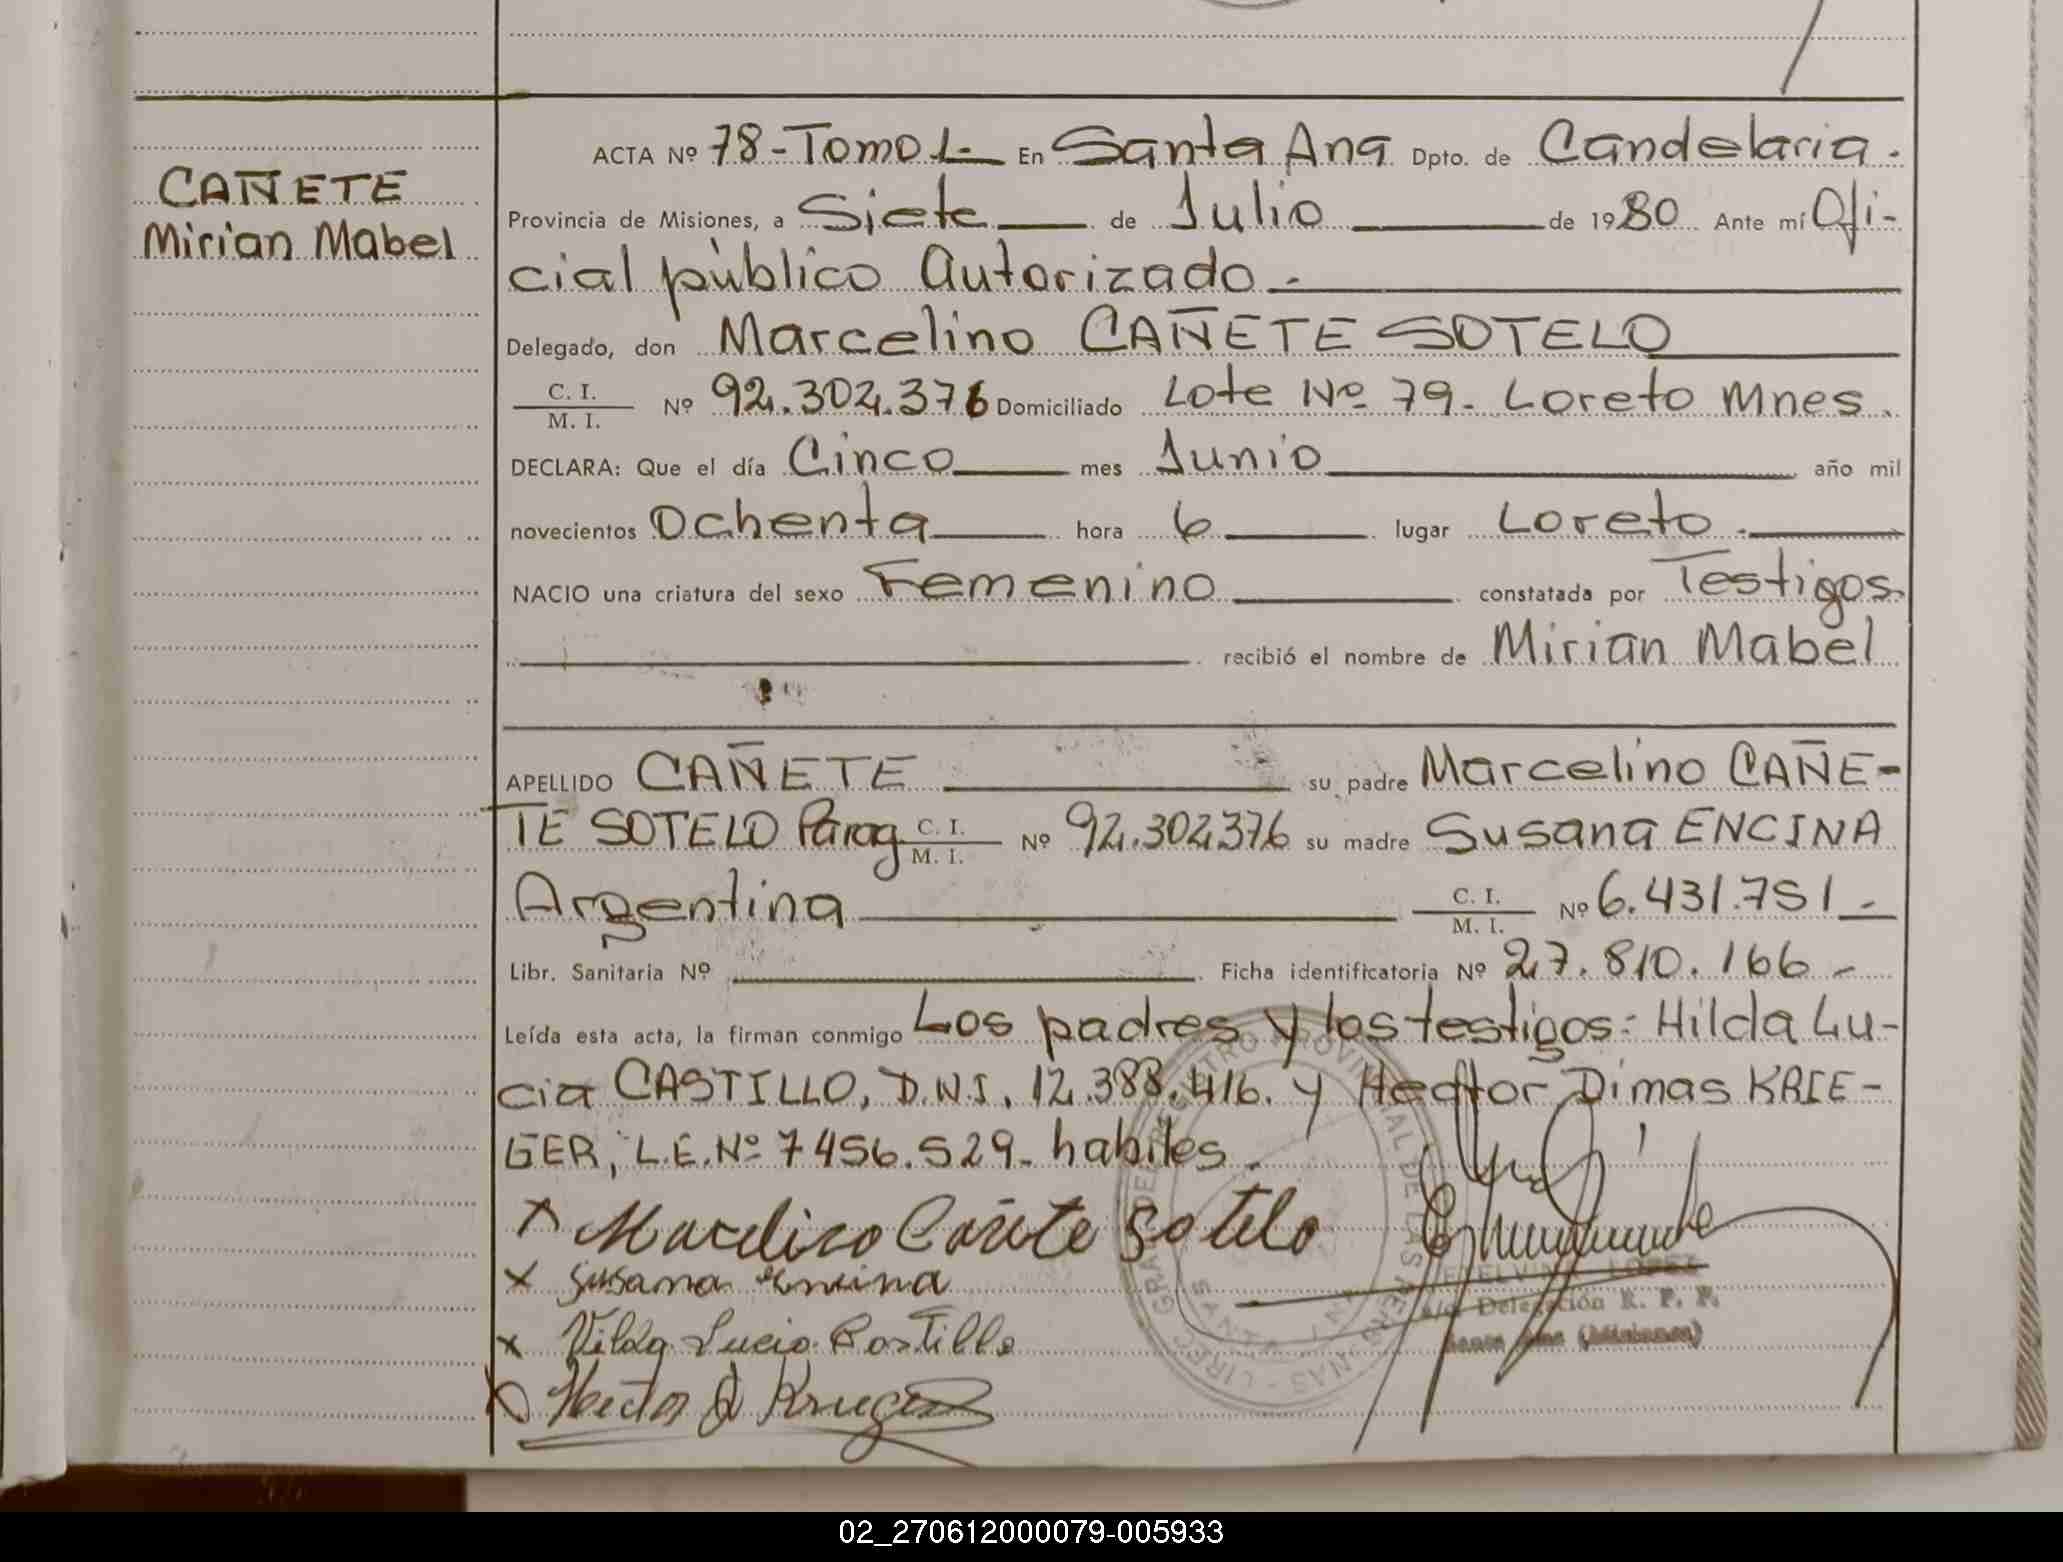 CAÑETE
Mirian Mabel
ACTA Nº 78-Tomo 1- En Santa Ana Dpto. de Candelaria.
Provincia de Misiones, a Siete de Julio de 1980 Ante mí Ofi-
cial público Autorizado.-
Delegado, don Marcelino CAÑETE SOTELO
C. I.
M. I. Nº 92.302.376 Domiciliado Lote Nº 79- Loreto Mnes.
DECLARA: Que el día Cinco mes Junio año mil
novecientos Ochenta hora 6 lugar Loreto.-
NACIO una criatura del sexo Femenino constatada por Testigos.
recibió el nombre de Mirian Mabel
APELLIDO CAÑETE su padre Marcelino CAÑE-
TE SOTELO Parag C. I. M. I. Nº 92.302.376 su madre Susana ENCINA
Argentina C. I. M. I. Nº 6.431.751-
Libr. Sanitaria Nº Ficha identificatoria Nº 27.810.166-
Leída esta acta, la firman conmigo Los padres y los testigos: Hilda Lu-
cia CASTILLO, D.N.I. 12.388.416. y Hector Dimas KRIE-
GER, L.E.Nº 7456.529- habiles.
x Marcelino Cañete Sotelo
x Susana Encina
x Hilda Lucia Castillo
Hector D Krieger
LOPEZ
Delegación R. P. P.
Santa Ana (Misiones)
REGISTRO PROVINCIAL DE LAS PERSONAS
SANTA ANA
02_270612000079-005933